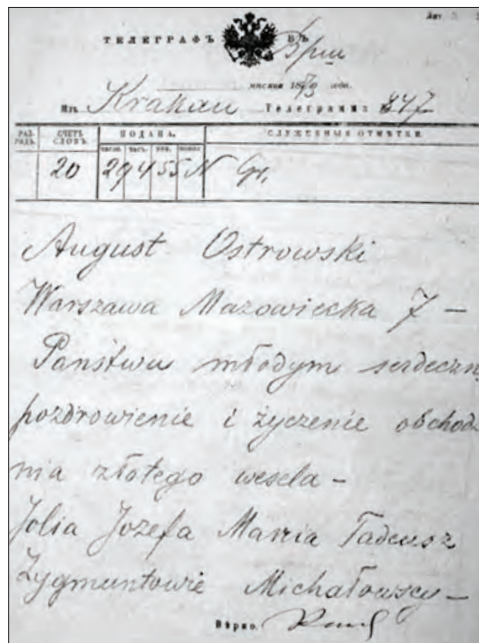 ТЕЛЕГРАФЪ ВЪ
мѣсяца 18 года.
Изъ Krakau Телеграмма № 247
РАЗРЯДЪ. СЧЕТЪ СЛОВЪ. ПОДАНА. СЛУЖЕБНЫЯ ОТМѢТКИ.
20 29 4 55 N Gr.
August Ostrowski
Warszawa Mazowiecka 7 –
Państwu młodym serdeczn
pozdrowienie i życzenie obchodz
nia złotego wesela –
Jolia Jozefa Marria Tadeusz
Zygmuntowie Michałowscy –
Вѣрно.